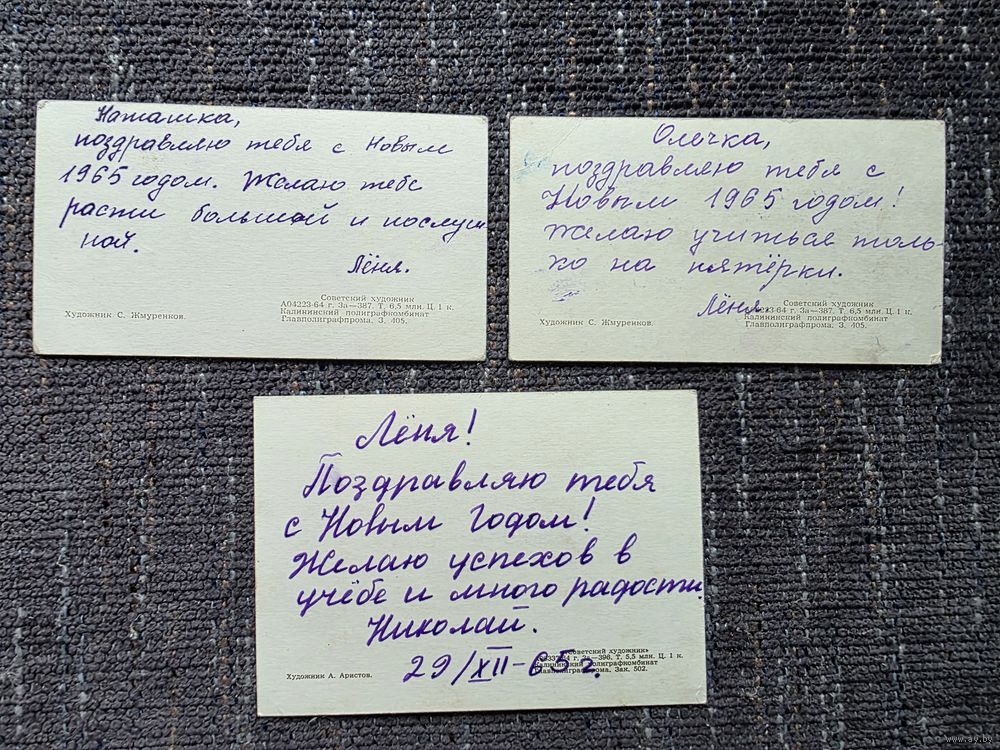 Наташка,
поздравляю тебя с Новым
1965 годом. Желаю тебе
расти большой и послуш
ной.
Лёня.
Советский художник
А04223-64 г. За—387. Т. 6,5 млн. Ц. 1 к.
Калининский полиграфкомбинат
Главполиграфпрома. З. 405.
Художник С. Жмуренков.
Олечка,
поздравляю тебя с
Новым 1965 годом!
Желаю учиться толь-
ко на пятёрки.
Лёня.
Советский художник
За—387. Т. 6,5 млн. Ц. 1 к.
Калининский полиграфкомбинат
Главполиграфпрома. З. 405.
Художник С. Жмуренков.
Лёня!
Поздравляю тебя
с Новым Годом!
Желаю успехов в
учёбе и много радости.
Николай.
29/XII-65г.
Советский художник»
г. За—396. Т. 5,5 млн. Ц. 1 к.
Калининский полиграфкомбинат
Главполиграфпрома. Зак. 502.
Художник А. Аристов.
www.ay.by